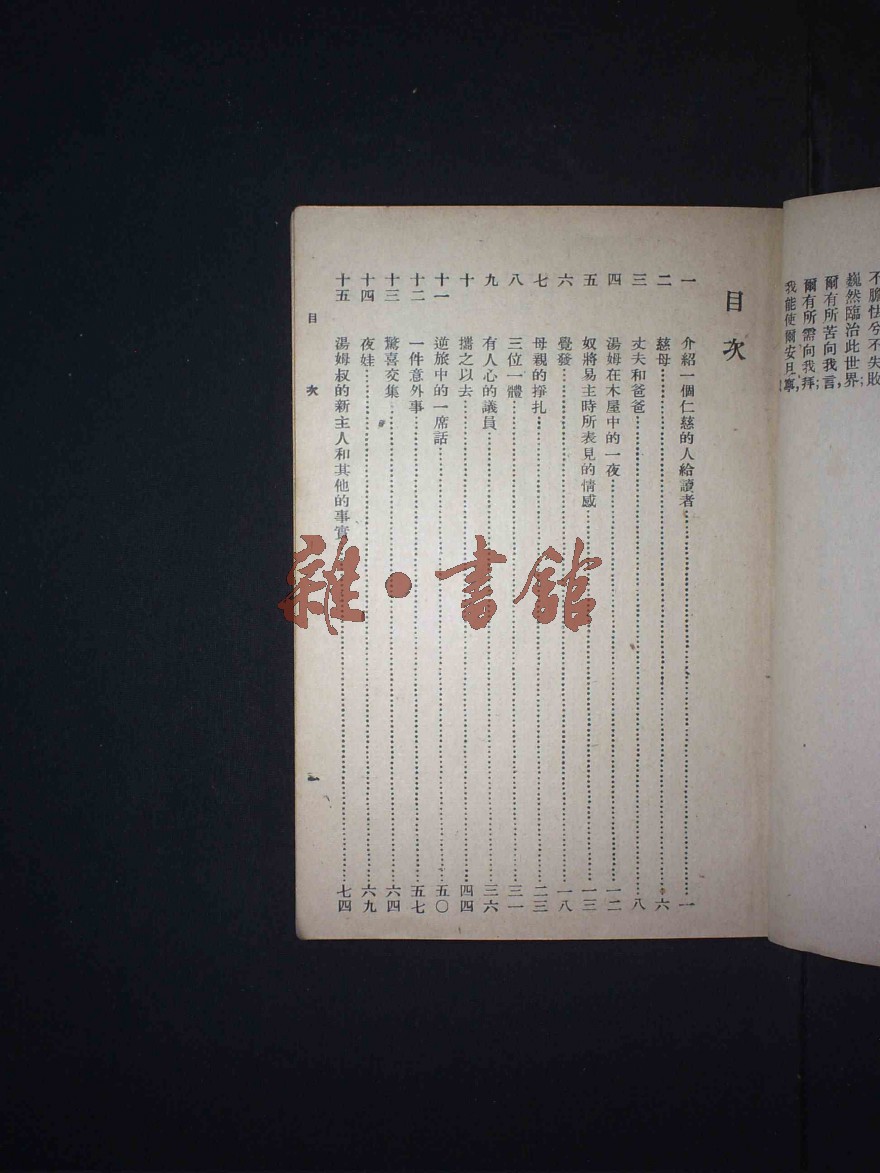 不膽怯兮不失敗
巍然臨治此世界；
爾有所苦向我言，
爾有所需向我拜；
我能使爾安且寧，
目次
一 介紹一個仁慈的人給讀者 一
二 慈母 六
三 丈夫和爸爸 八
四 湯姆在木屋中的一夜 一二
五 奴將易主時所表見的情感 一三
六 覺發 一八
七 母親的掙扎 二三
八 三位一體 三一
九 有人心的議員 三六
十 攜之以去 四四
十一 逆旅中的一席話 五〇
十二 一件意外事 五七
十三 驚喜交集 六四
十四 夜娃 六九
十五 湯姆叔的新主人和其他的事實 七四
目次 一
雜·書館